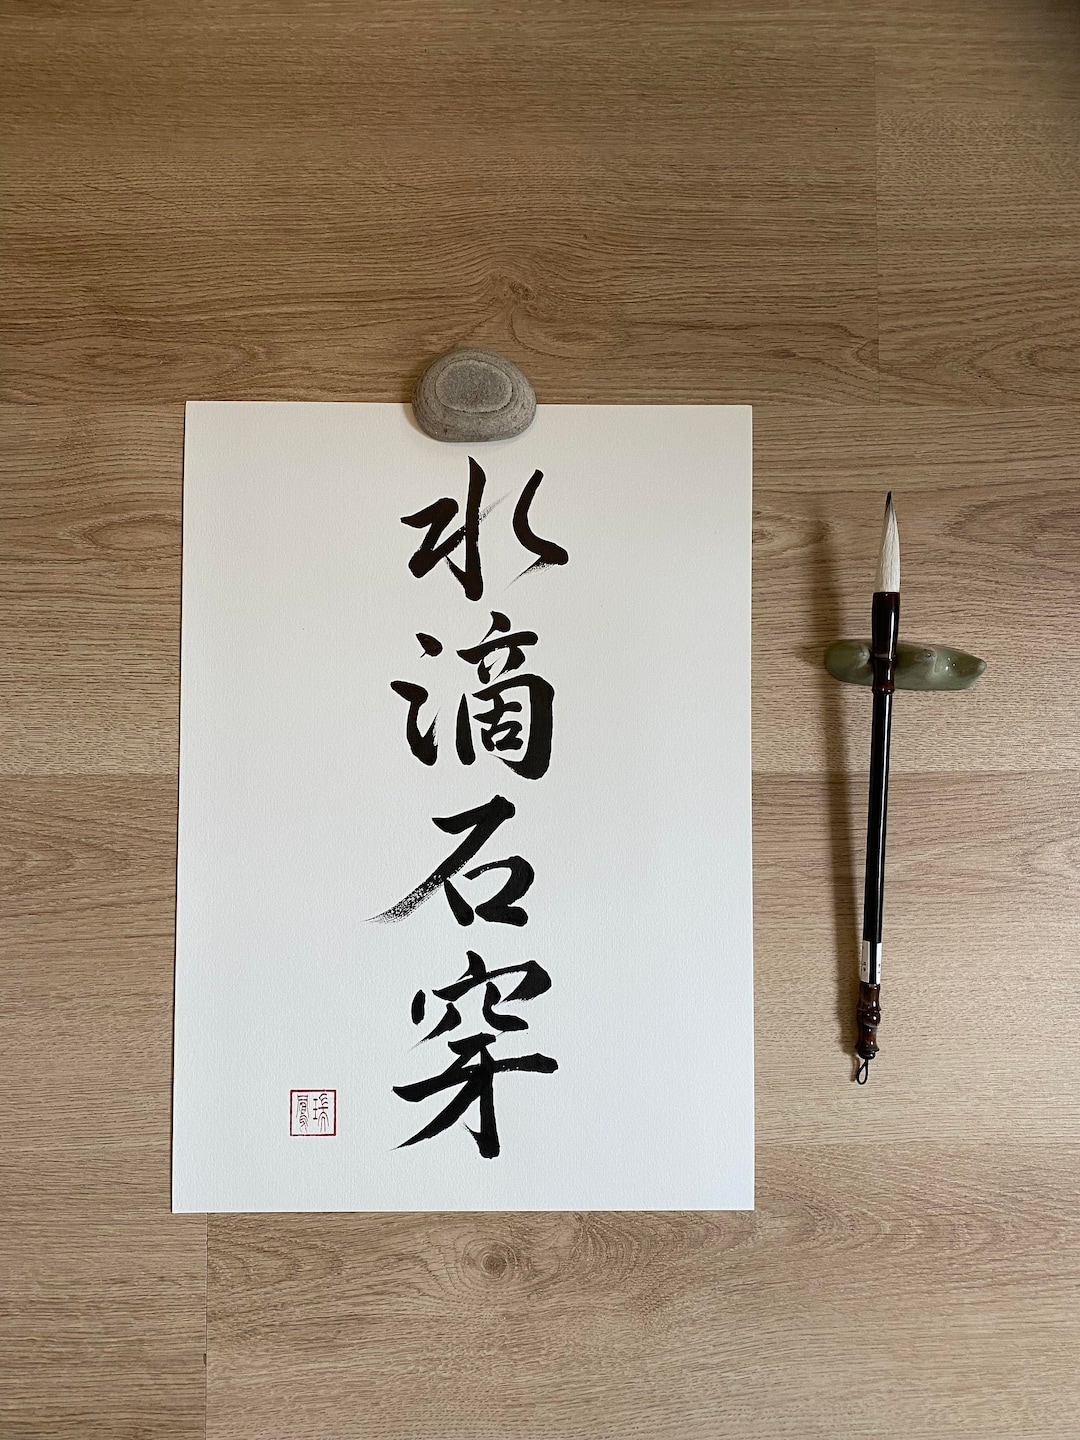 水滴石穿